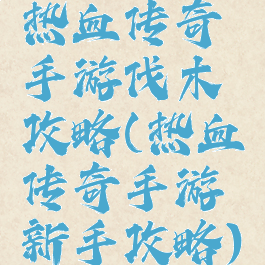 热血传奇
手游伐木
攻略(热血
传奇手游
新手攻略)